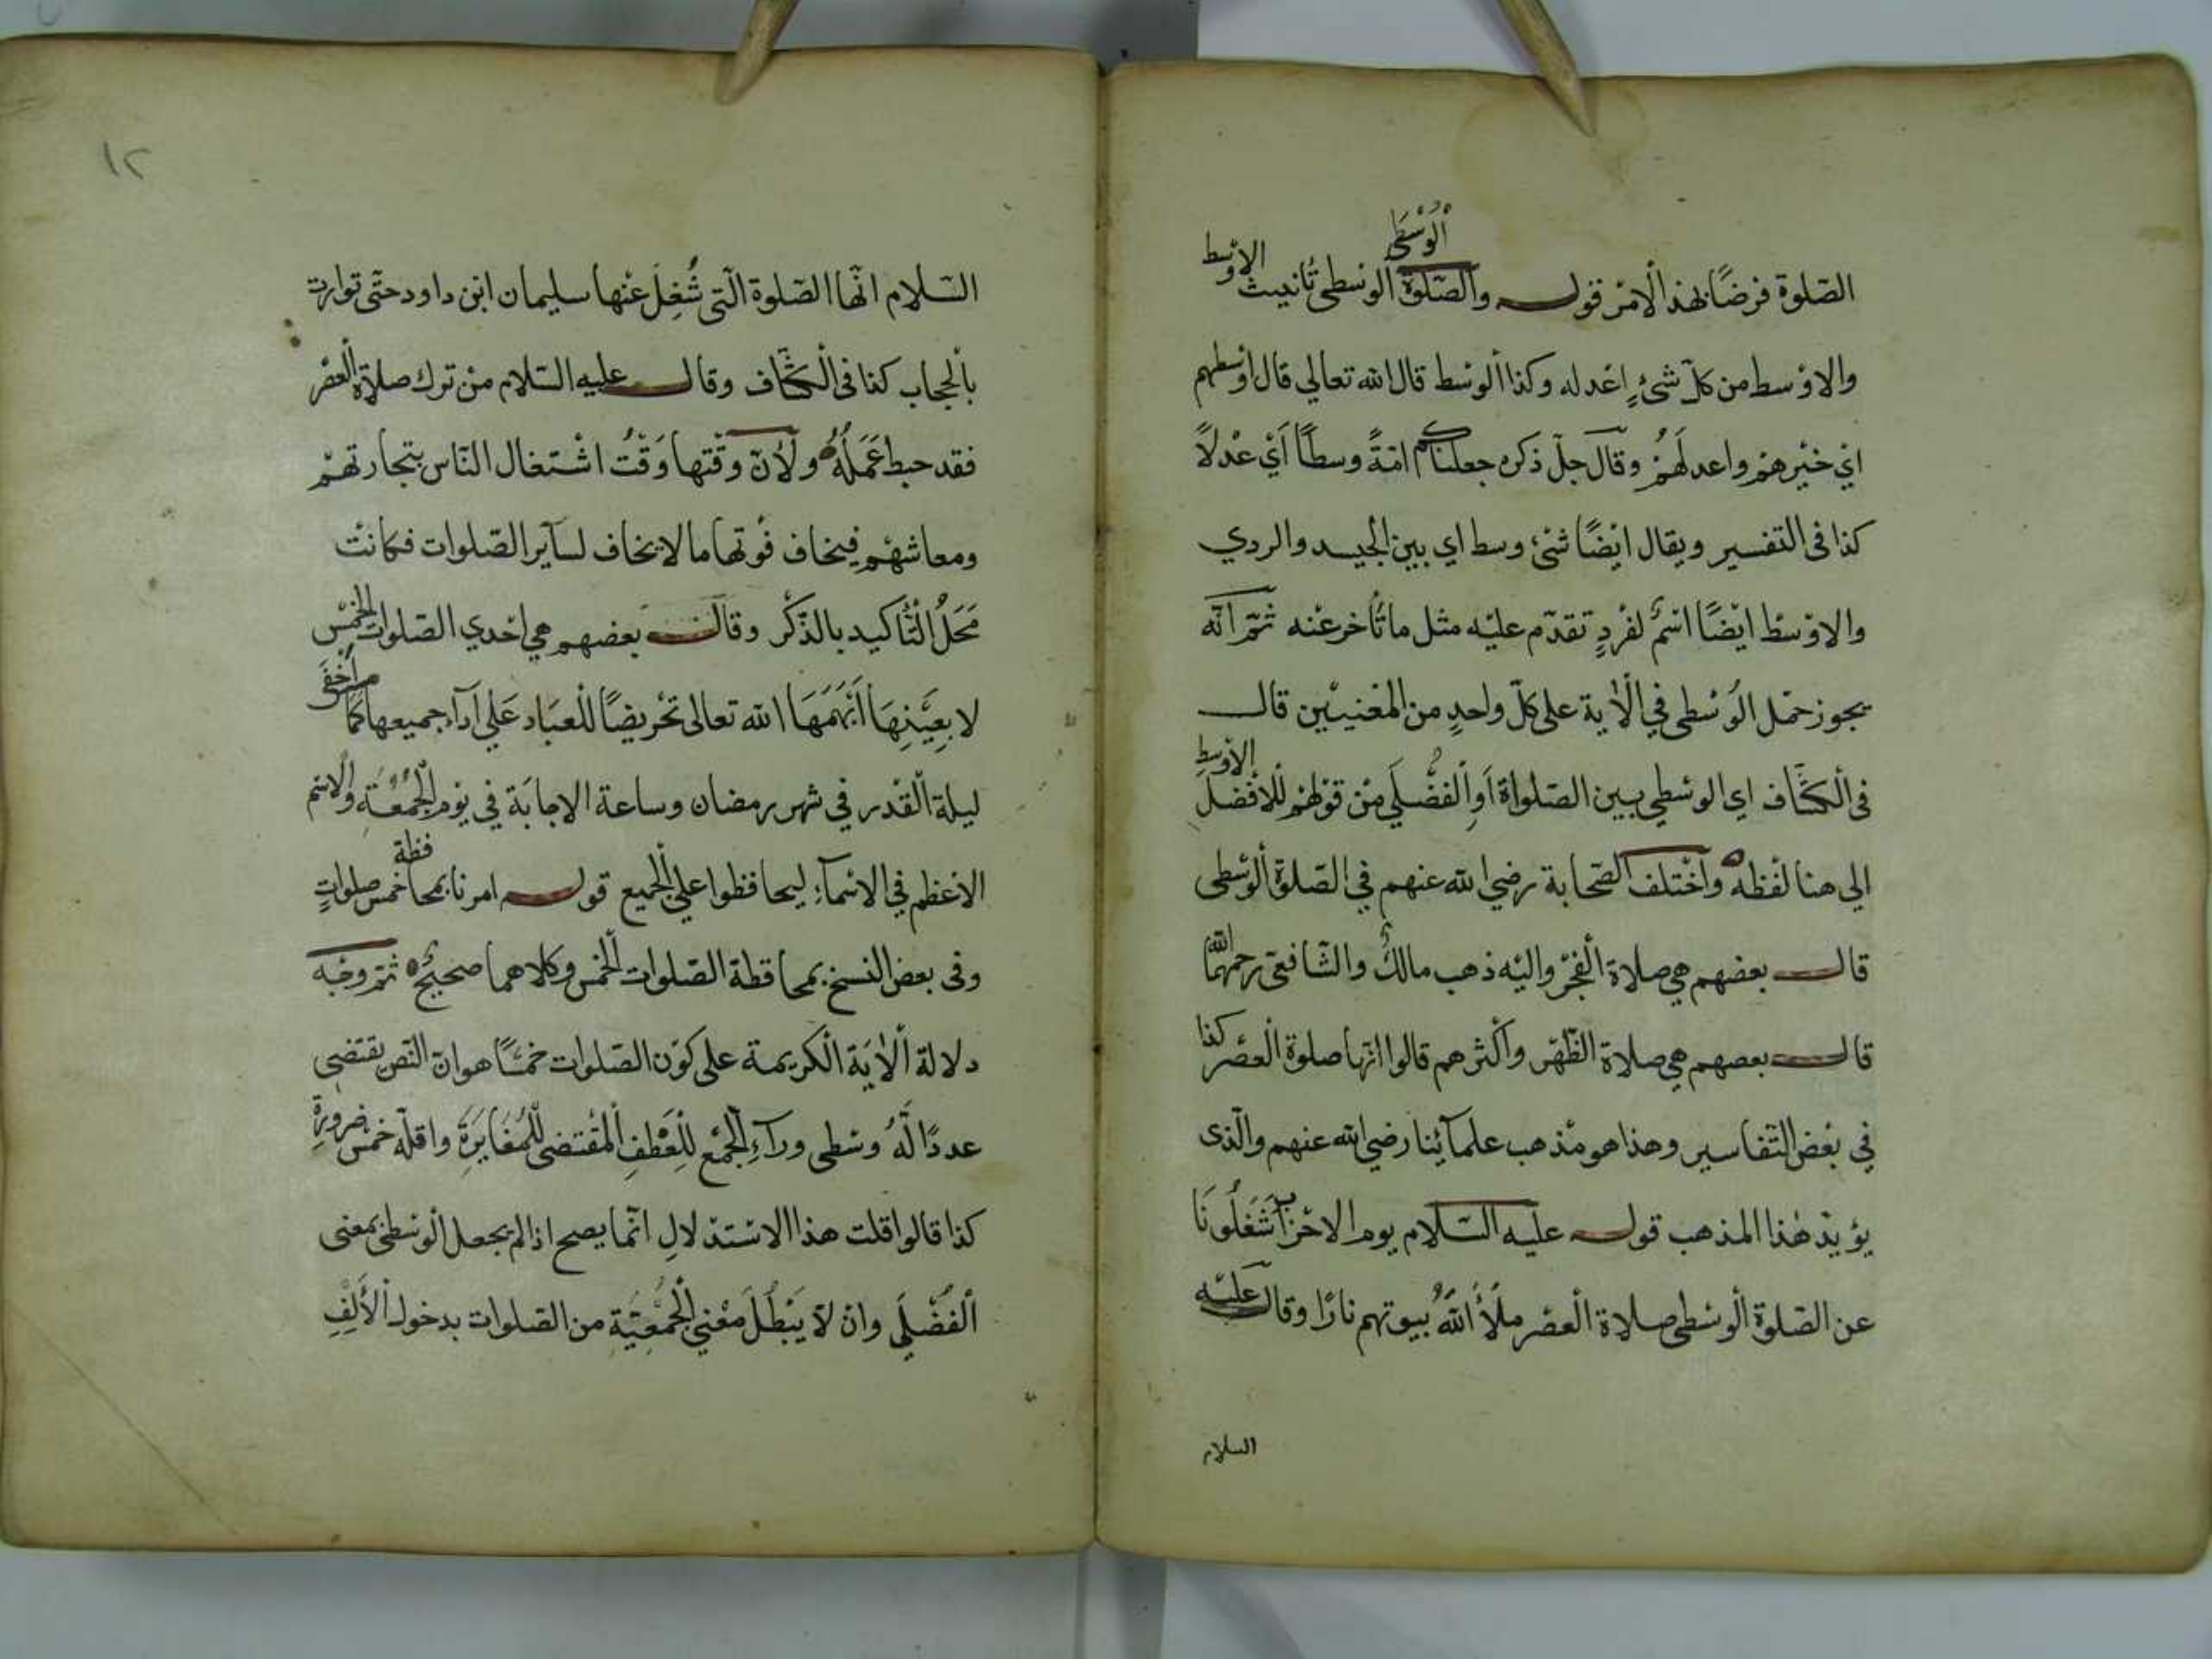 الصّلوة فرضًا بهذ الامر قوله والصّلوة الوُسْطى الوسطى تانيث الاوسط
والاوسط من كلّ شئٍ اعدله وكذا الوسط قال الله تعالي قال اوسطهم
اي خيرهم واعدلهم وقال جلّ ذكره جعلناكم امّةً وسطاً اي عدلاً
كذا فى التفسير ويقال ايضًا شئ وسط اي بين الجيد والردي
والاوسط ايضًا اسمٌ لفردٍ تقدّم عليه مثل ما تأخر عنه ثمّ انّه
يجوز حمل الوسطى في الاية على كلّ واحدٍ من المعنيين قال
فى الكشّاف اي الوسطي بين الصّلواة اَوِ الفُضْلَي من قولهم للافضل الاوسط
الي هنا لفظه واختلف الصّحابة رضي الله عنهم في الصّلوة الوسطى
قال بعضهم هي صلاة الفجر واليه ذهب مالكٌ والشّافعى رحمهما الله
قال بعصهم هي صلاة الظّهر واكثرهم قالوا انّها صلوة العصر كذا
في بعض التّفاسير وهذا هو مذهب علمآئنا رضي الله عنهم والّذى
يؤيّد هٰذا المذهب قوله عليه السّلام يوم الاحزاب شَغَلُونَا
عن الصّلوة الوسطى صلاة العصر ملأ اللهُ بيوتهم نارًا وقال عليه
السلام
١٢
السّلام انّها الصّلوة الّتى شُغِلَ عنها سليمان ابن داود حتّى توارت
بالحجاب كذا فى الكشّاف وقال عليه السّلام من ترك صلاة العصر
فقد حبط عَمَلُهُ ولانّ وقتها وَقْتُ اشتغال النّاس بتجارتهم
ومعاشهم فيخاف فوتها ما لا يخاف لسآير الصّلوات فكانت
مَحَلُ التّاكيد بالذّكر وقال بعضهم هي احدي الصّلوات الخمس
لا بعينها اَبْهَمَهَا الله تعالى تحريضًا للعباد عَلي آدآء جميعها كما اخفى
ليلة القدر في شهر رمضان وساعة الاجابَة في يوم الجمعة والاسم
الاعظم في الاسمآءِ ليحافظوا علي الجميع قوله امرنا بمحافظة خمس صلواتٍ
وفى بعض النسخ بمحافظة الصّلوات الخمس وكلاهما صحيحٌ ثمّ وجه
دلالة الاٰيَة الكريمة على كون الصّلوات خمسًا هو انّ النّص يقتضى
عددًا لَهُ وسْطى ورآءِ الجمع للعَطْفِ المقتضى للمُغَايَرَةِ واقلّه خمس ضرورةً
كذا قالوا قلت هذا الاستدلالِ انّما يصح اذا لم يجعل الوسطى بمعنى
الفُضْلَي وان لا يَبْطُلَ معْني الجمعيّة من الصلوات بدخول الألِفِ